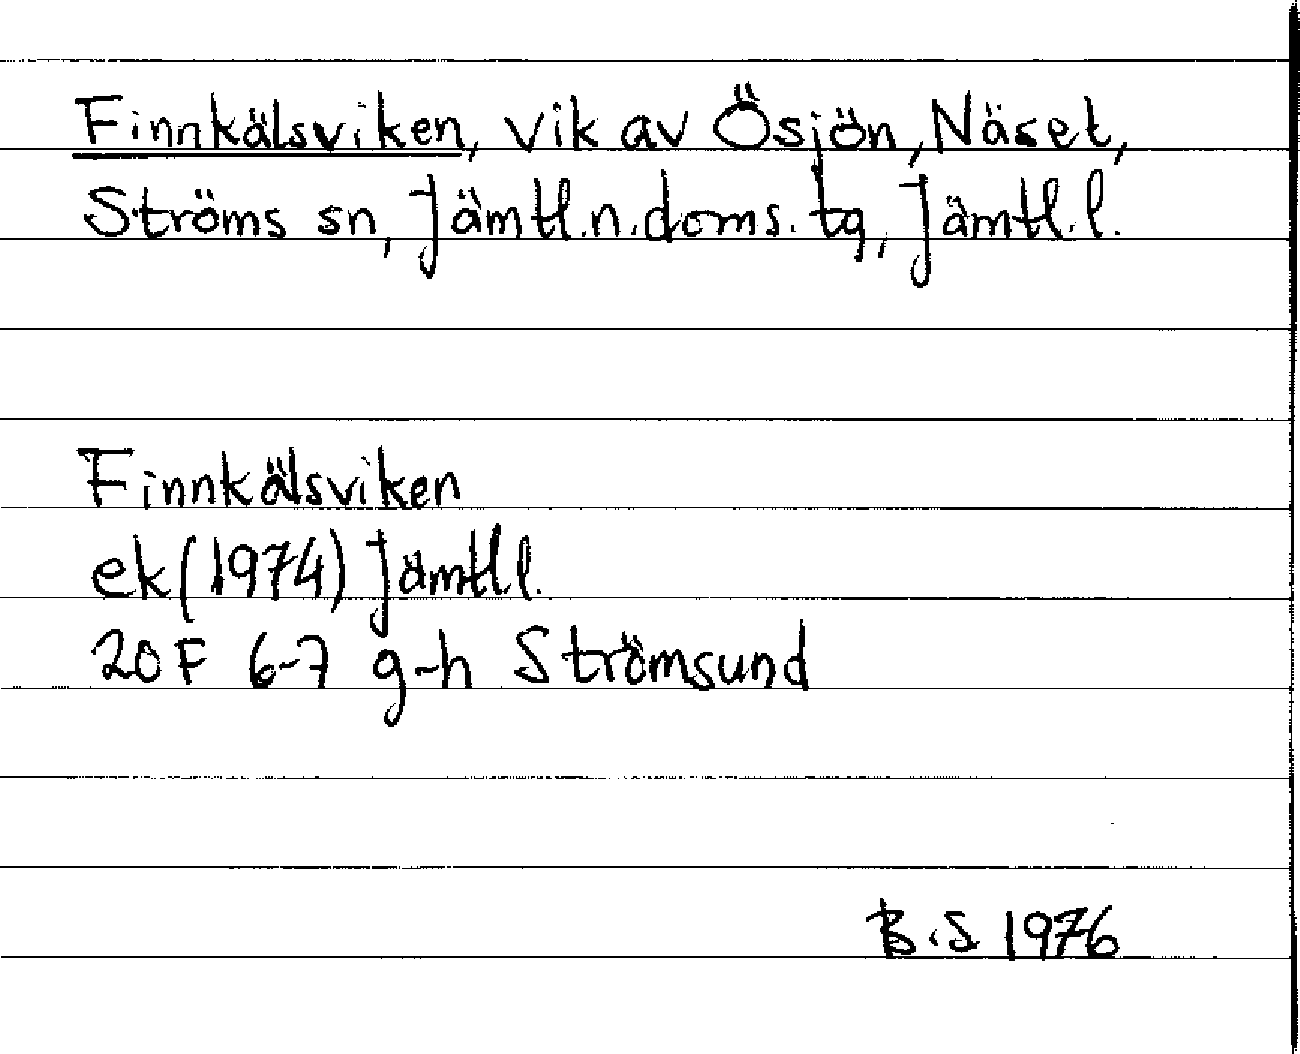 Finnkälsviken, vik av Ösjön, Näset,
Ströms sn, Jämtl.n.doms.tg, Jämtl.l.
Finnkälsviken
ek (1974) Jämtl l.
20F 6-7 g-h Strömsund
B.S 1976